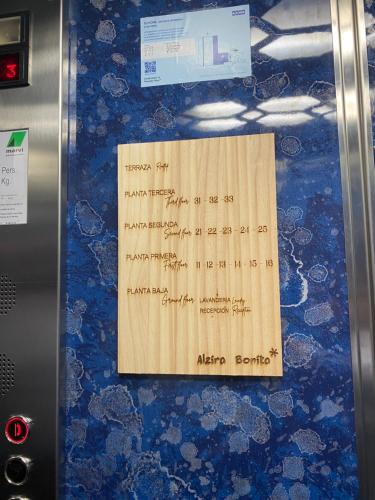 3
marvi
Pers.
Kg.
KONE
TERRAZA Rooftop
PLANTA TERCERA
Third floor 31 - 32 - 33
PLANTA SEGUNDA
Second floor 21 - 22 - 23 - 24 - 25
PLANTA PRIMERA
First floor 11 - 12 - 13 - 14 - 15 - 16
PLANTA BAJA
Ground floor LAVANDERIA Laundry
RECEPCIÓN Reception
Alzira Bonita*